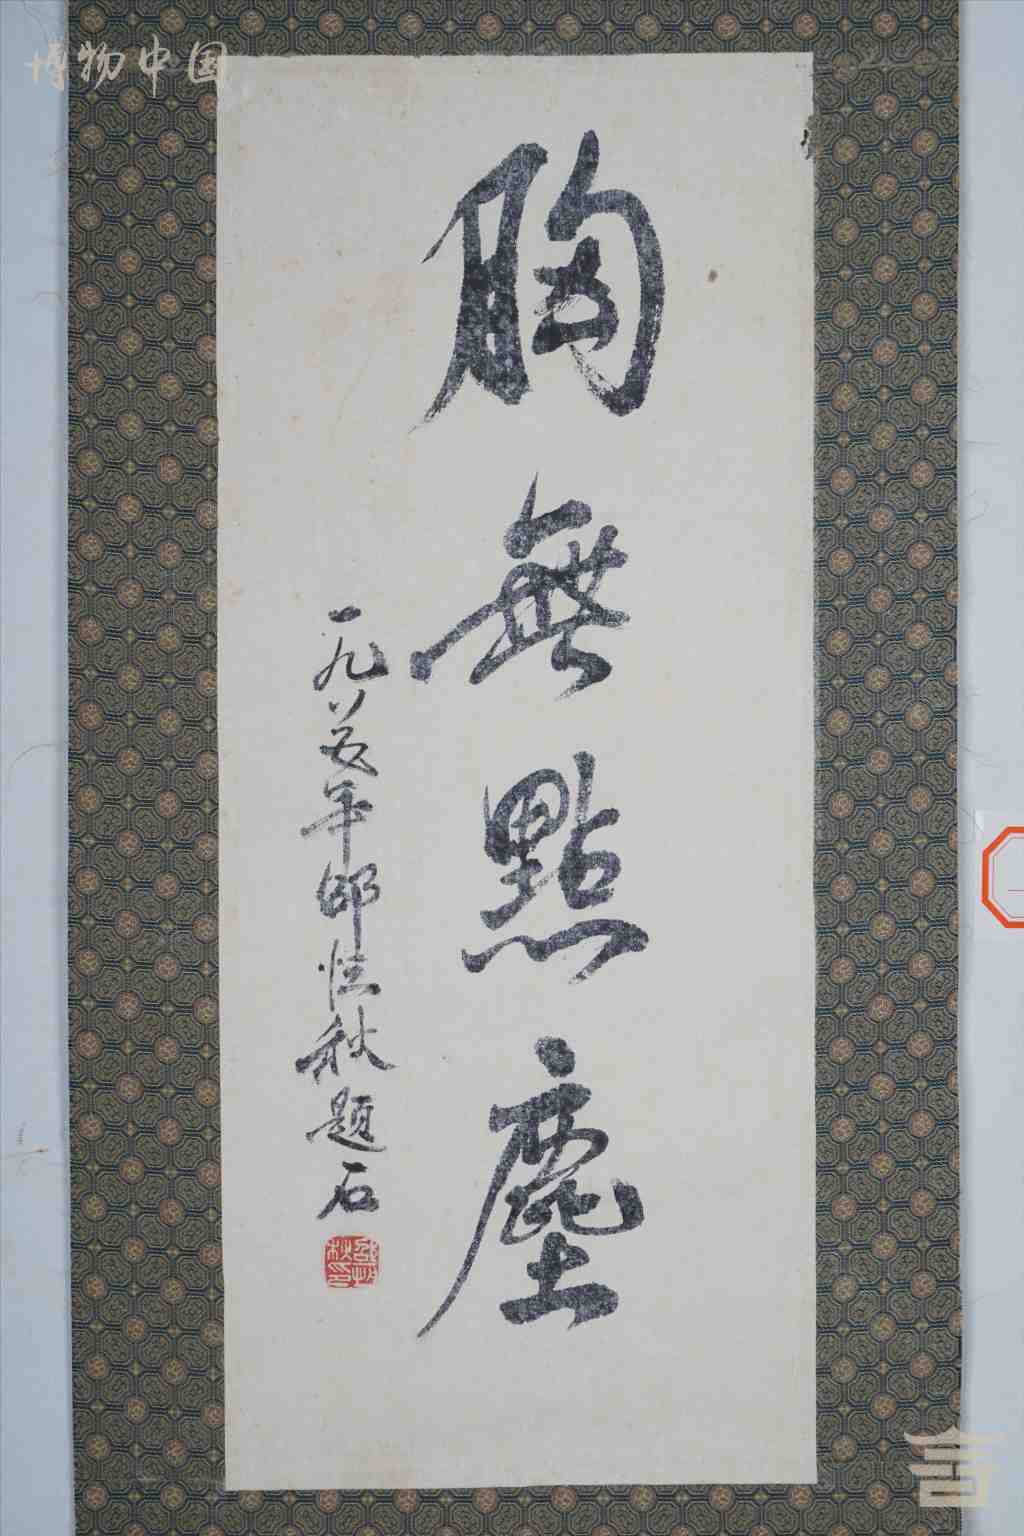 博物中国
胸無點塵
一九八五年邵恒秋题石